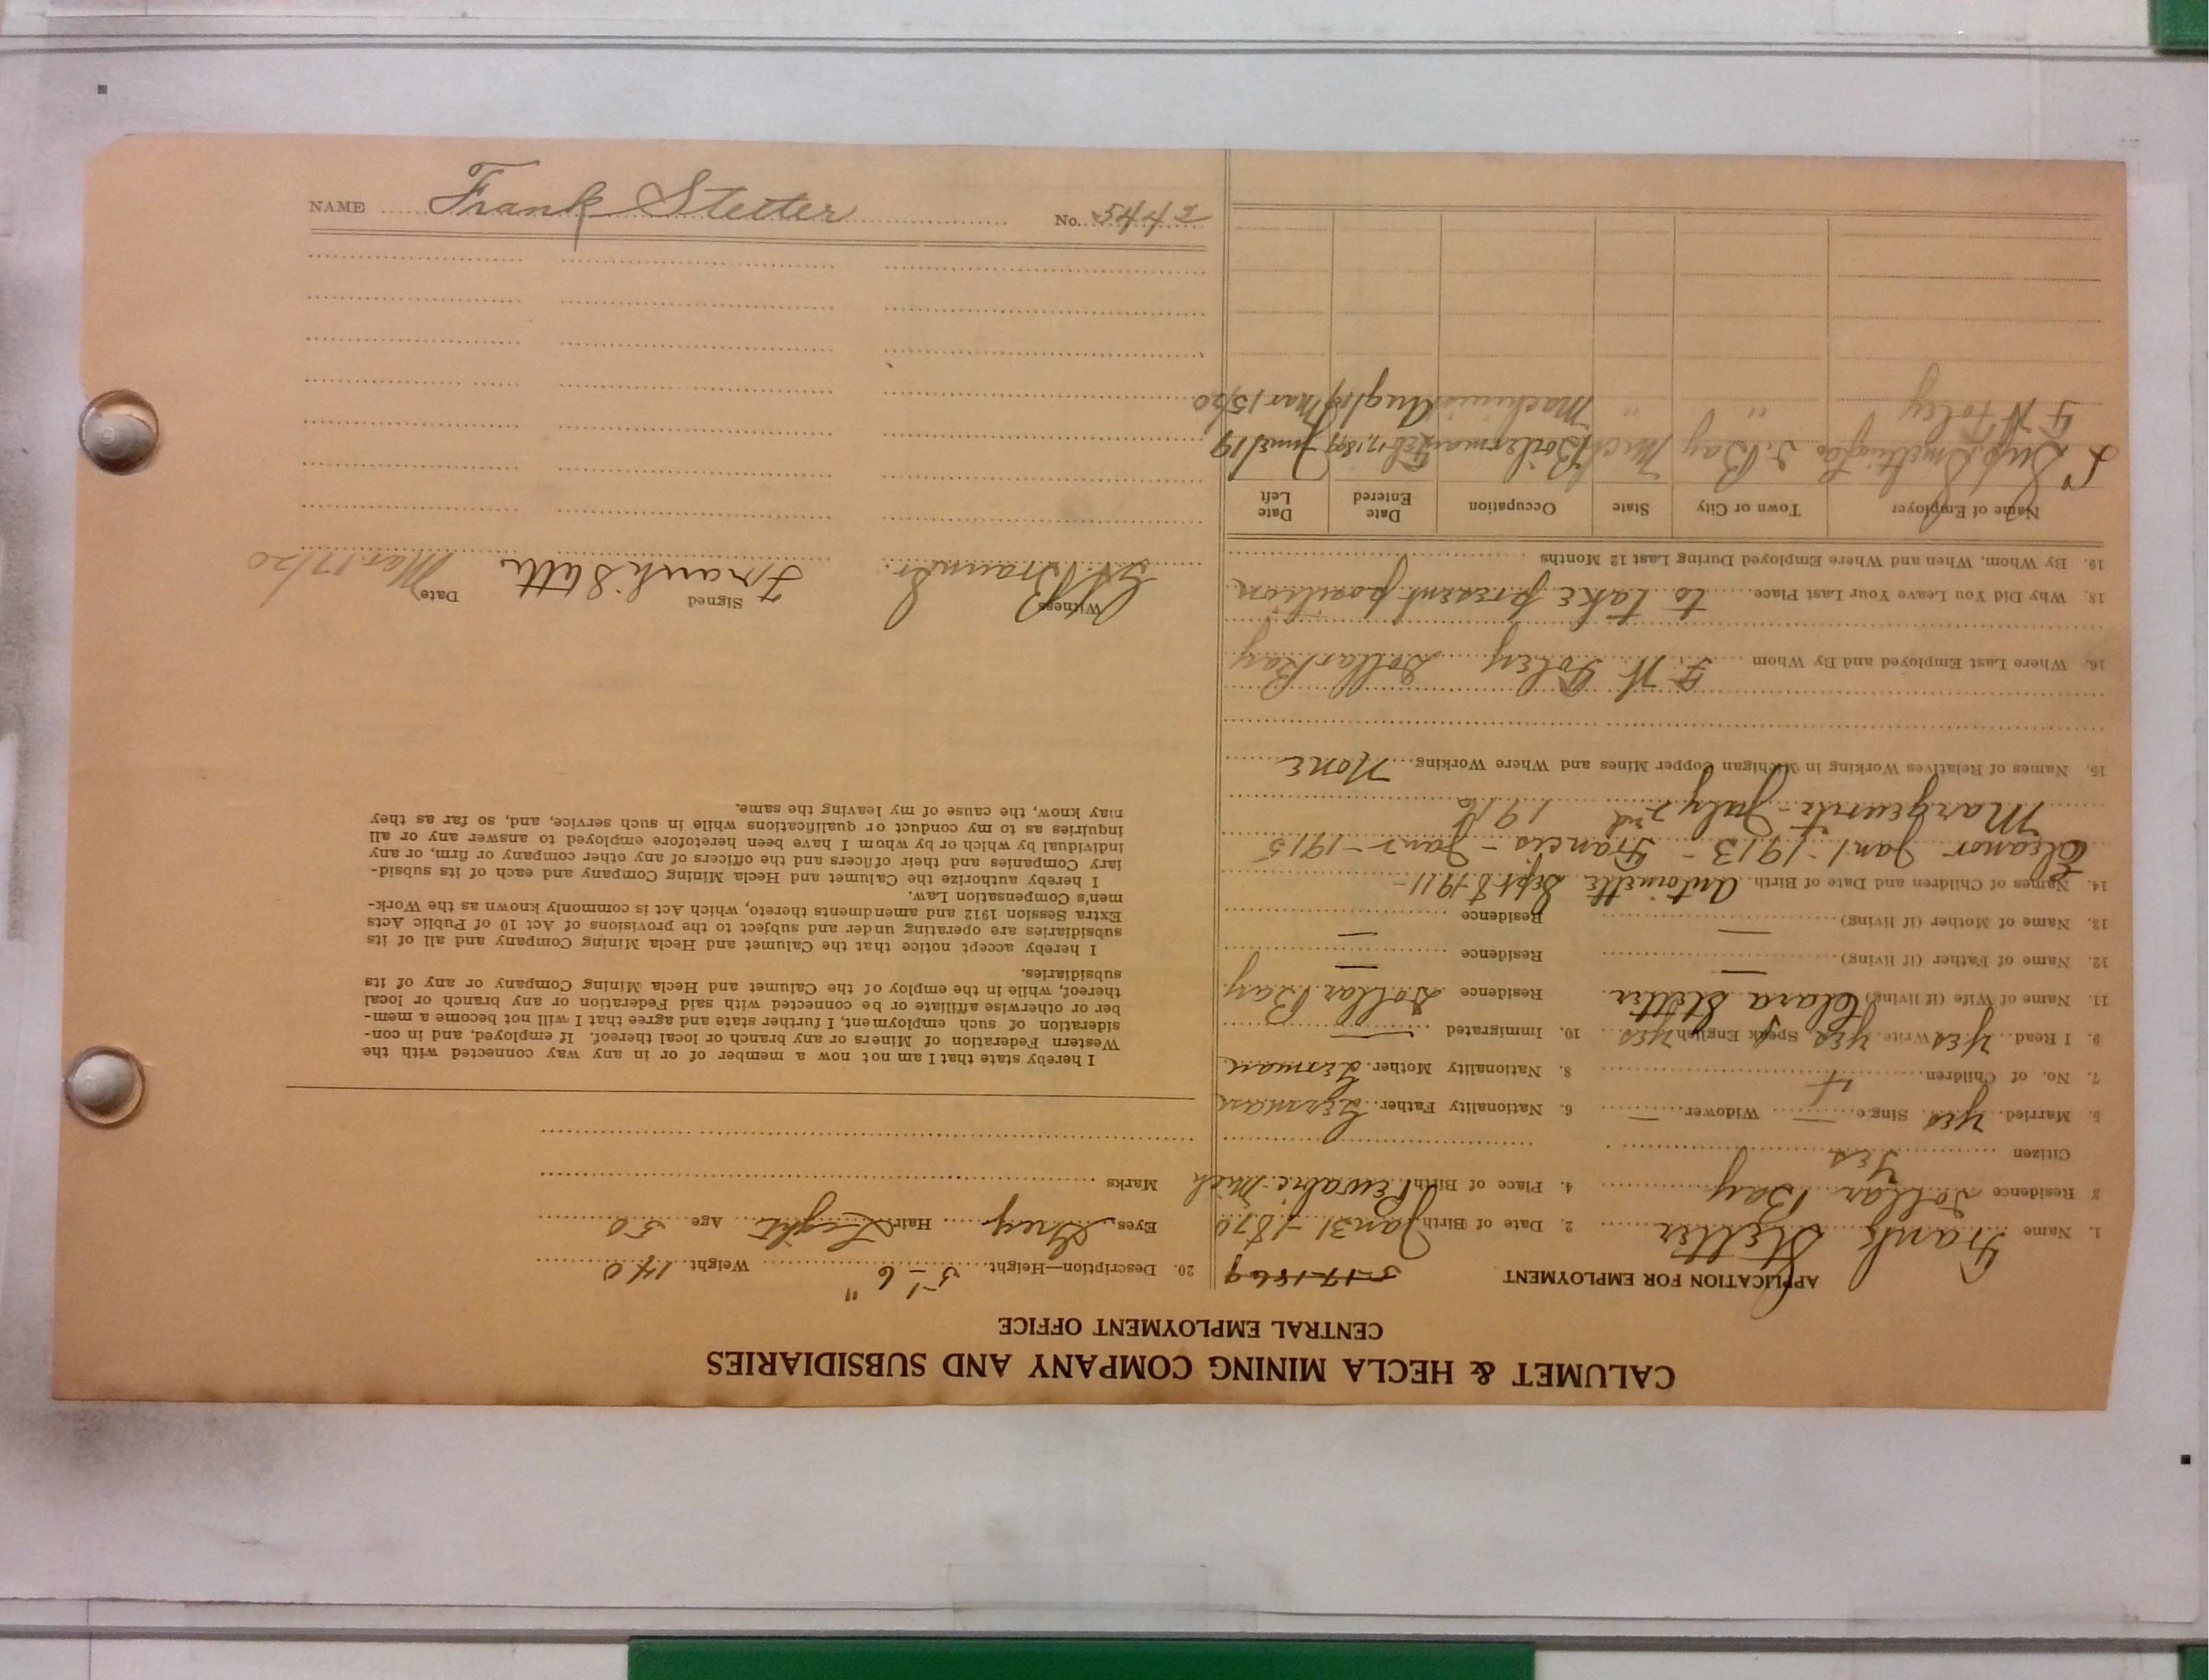 CALUMET & HECLA MINING COMPANY AND SUBSIDIARIES
CENTRAL EMPLOYMENT OFFICE
APPLICATION FOR EMPLOYMENT 5-17-1869
1. Name Frank Stetter 2. Date of Birth Jan 31-1870
3 Residence Dollar Bay 4. Place of Birth Pewabic Mich
Citizen Yes
5. Married yes Single — Widower — 6. Nationality Father German
7. No. of Children 4 8. Nationality Mother German
9. I Read yes Write yes Speak English yes 10. Immigrated —
11. Name of Wife (if living) Clara Stetter Residence Dollar Bay
12. Name of Father (if living) — Residence —
13. Name of Mother (if living) — Residence
14. Names of Children and Date of Birth Antoinette Sept 8-1911-
Eleanor Jan 1-1913- Francis-Jan 2-1915
Marguerite-July 2nd 1916
15. Names of Relatives Working in Michigan Copper Mines and Where Working None
16. Where Last Employed and By Whom F. H. Foley Dollar Bay
18. Why Did You Leave Your Last Place to take present position
19. By Whom, When and Where Employed During Last 12 Months
Name of Employer Town or City State Occupation Date Entered Date Left
L Sup. Smelting Co D. Bay Mich Boilerman Feb 17, June 1/19
F H Foley " " Machinist Aug 1/19 Mar 15/20
20. Description—Height 5'-6" Weight 140
Eyes Grey Hair Light Age 50
Marks
I hereby state that I am not now a member of or in any way connected with the
Western Federation of Miners or any branch or local thereof. If employed, and in con-
sideration of such employment, I further state and agree that I will not become a mem-
ber or otherwise affiliate or be connected with said Federation or any branch or local
thereof, while in the employ of the Calumet and Hecla Mining Company or any of its
subsidiaries.
I hereby accept notice that the Calumet and Hecla Mining Company and all of its
subsidiaries are operating under and subject to the provisions of Act 10 of Public Acts
Extra Session 1912 and amendments thereto, which Act is commonly known as the Work-
men's Compensation Law.
I hereby authorize the Calumet and Hecla Mining Company and each of its subsid-
iary Companies and their officers and the officers of any other company or firm, or any
individual by which or by whom I have been heretofore employed to answer any or all
inquiries as to my conduct or qualifications while in such service, and, so far as they
may know, the cause of my leaving the same.
Witness Signed Date
Frank Stetter Mar. 17/20
NAME Frank Stetter No. 5442